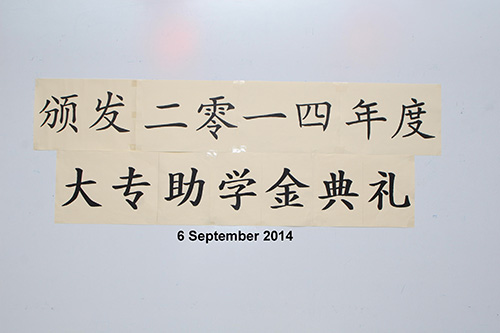 颁发二零一四年度
大专助学金典礼
6 September 2014